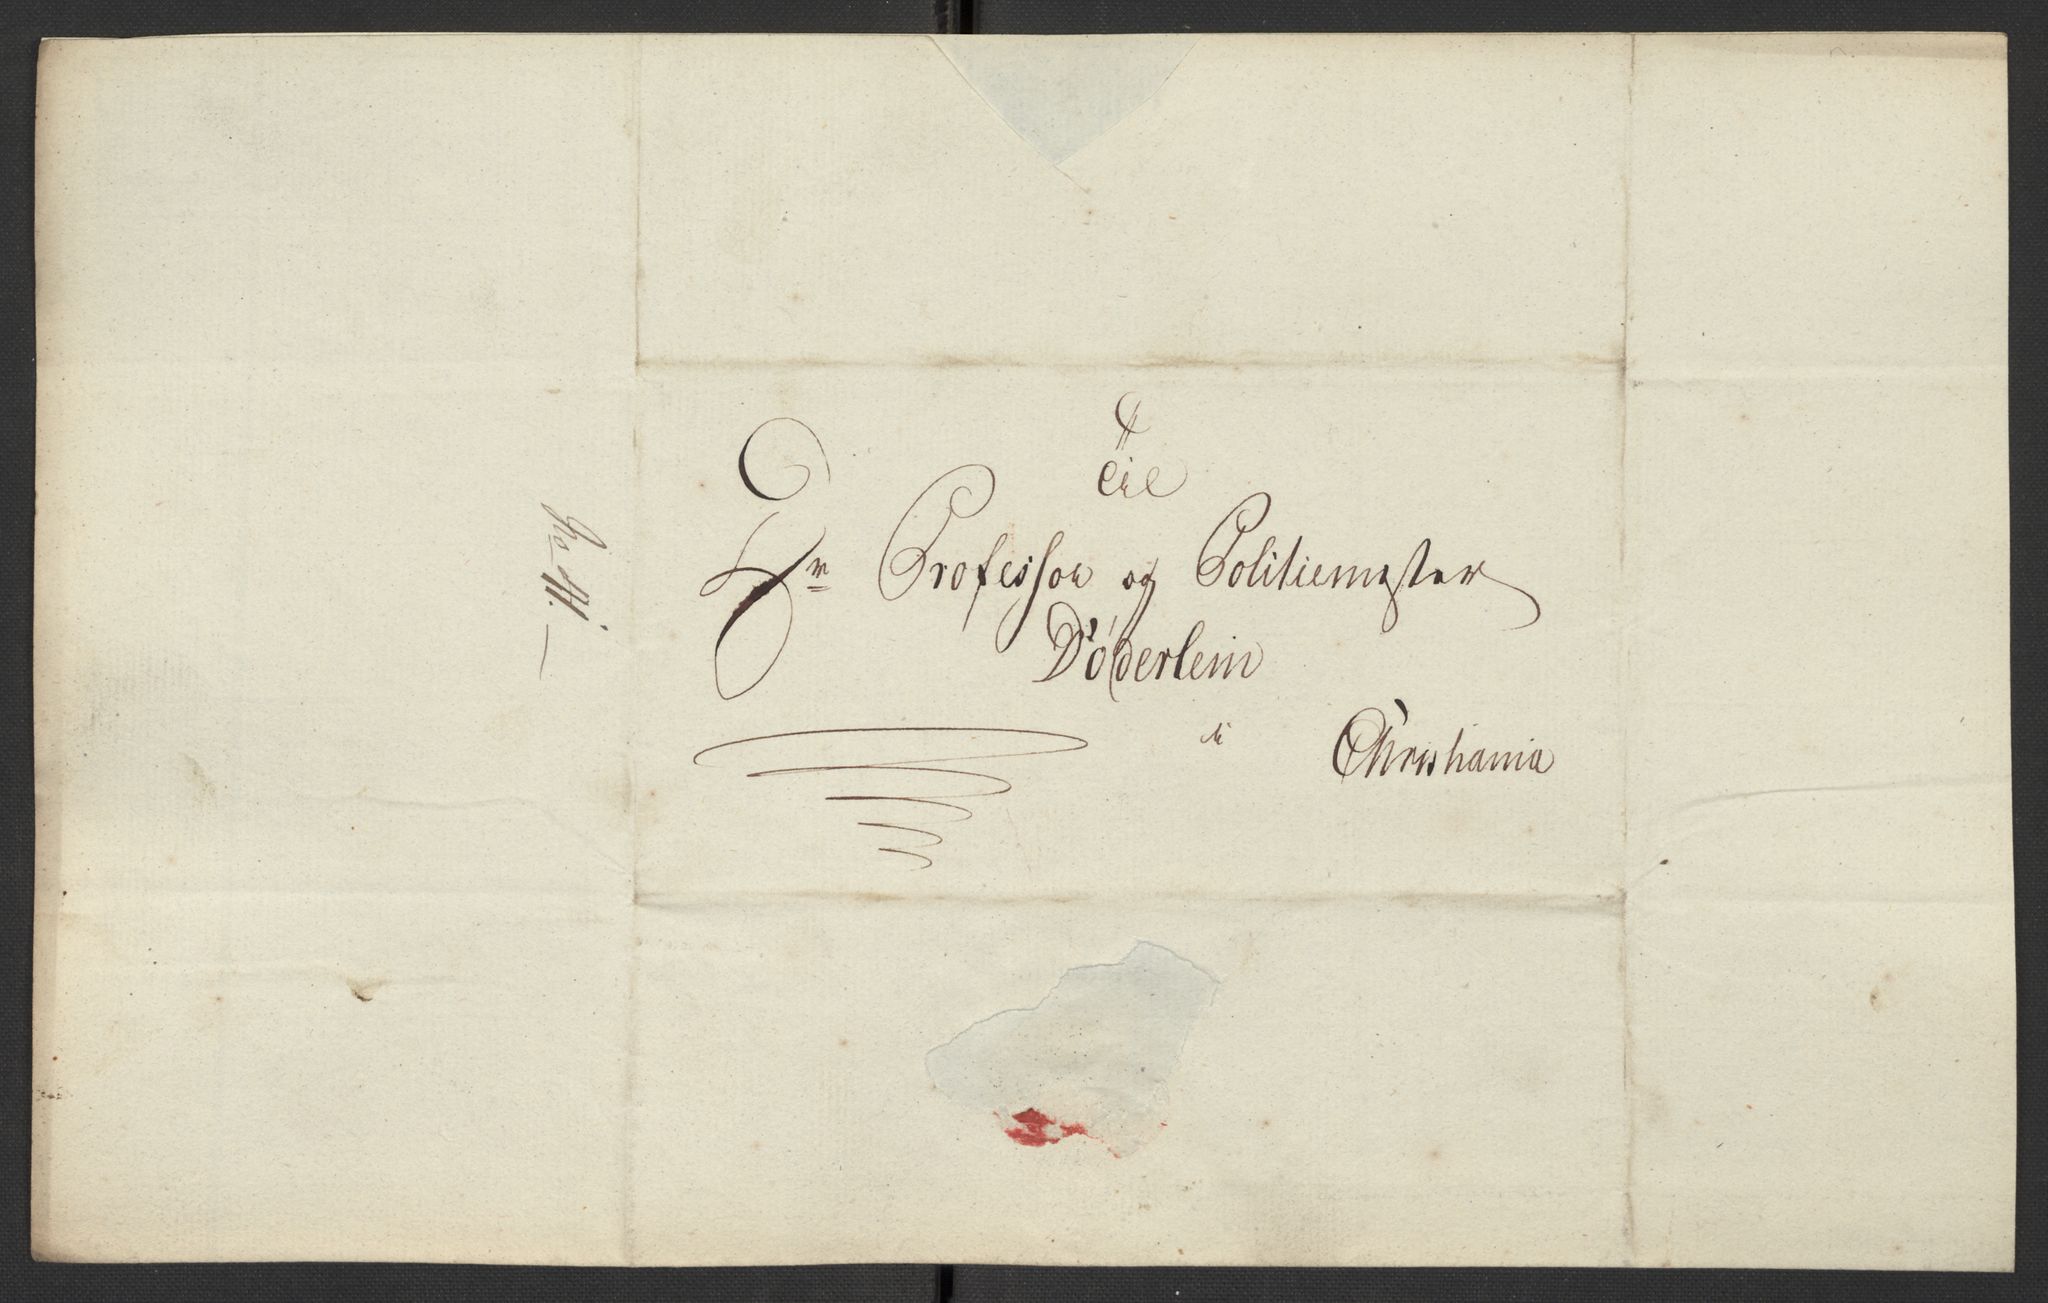 Til
Hr Professor og Politiemester
Døderlein
i Christiania